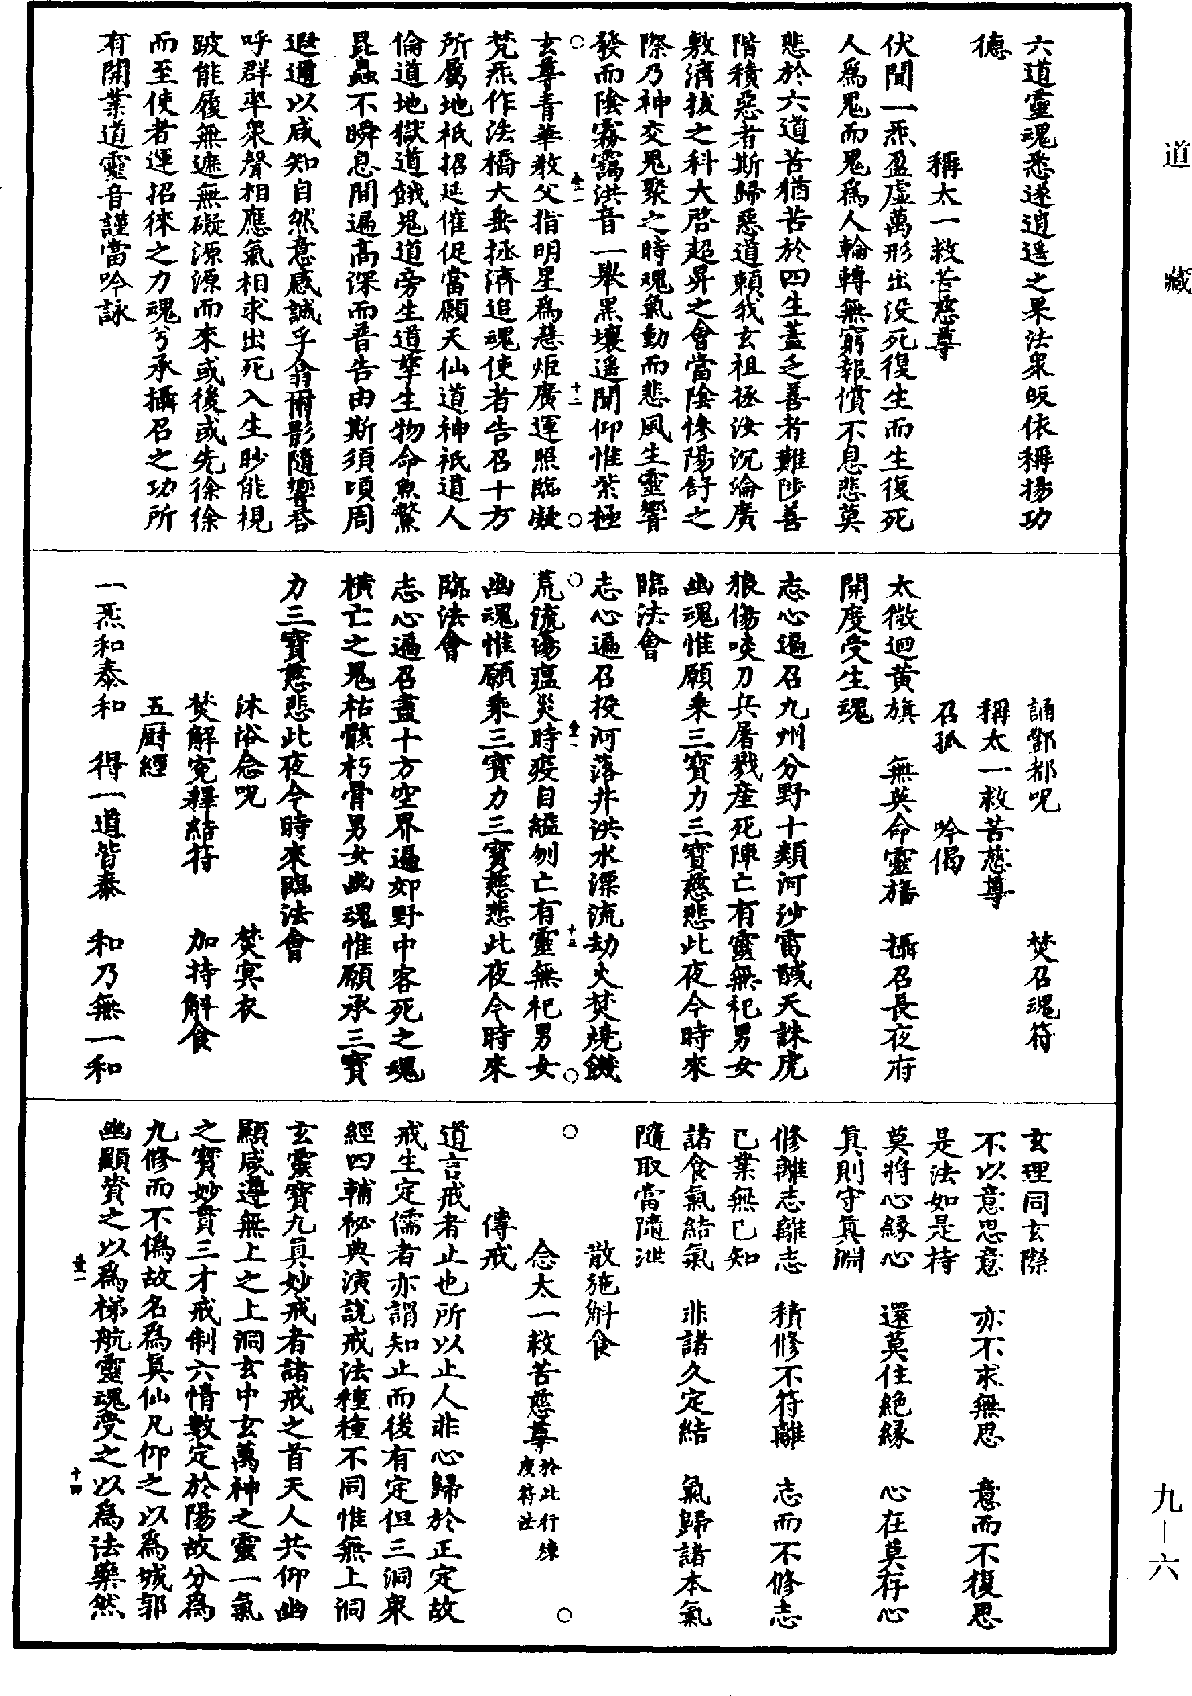 道藏
六道靈魂悉遂逍遥之果法衆皈依稱揚功
德
稱太一救苦慈尊
伏聞一炁盈虚萬形出没死復生而生復死
人爲鬼而鬼爲人輪轉無窮報償不息悲莫
悲於六道苦猶苦於四生蓋乏善者難陟善
階積惡者斯歸惡道賴我玄祖拯汝沉淪廣
敷濟拔之科大啓超昇之會當陰慘陽舒之
際乃神交鬼聚之時魂氣動而悲風生靈響
發而陰霧靄洪音一舉黑壤遥聞仰惟紫極
玄尊青華教父指明星爲慧炬廣運照臨凝
梵炁作法橋大垂拯濟追魂使者告召十方
所屬地祇招延催促當願天仙道神祇道人
倫道地獄道餓鬼道旁生道孳生物命魚鱉
昆蟲不瞬息間遍高深而普告由斯須頃周
遐邇以咸知自然意感誠孚翕爾影隨響答
呼群率衆聲相應氣相求出死入生眇能視
跛能履無遮無礙源源而來或後或先徐徐
而至使者運招徠之力魂兮承攝召之功所
有開業道靈音謹當吟詠
誦酆都呪　　焚召魂符
稱太一救苦慈尊
召孤　　吟偈
太微迴黄旗　無英命靈旛　攝召長夜府
開度受生魂
志心遍召九州分野十類河沙雷誠天誅虎
狼傷啖刀兵屠戮産死陣亡有靈無祀男女
幽魂惟願乘三寶力三寶慈悲此夜今時來
臨法會
志心遍召投河落井洪水漂流劫火焚燒饑
荒流蕩瘟災時疫自縊刎亡有靈無祀男女
幽魂惟願乘三寶力三寶慈悲此夜今時來
臨法會
志心遍召盡十方空界遍郊野中客死之魂
横亡之鬼枯骸朽骨男女幽魂惟願承三寶
力三寶慈悲此夜今時來臨法會
沐浴念呪　　焚冥衣
焚解寃釋結符　加持斛食
五厨經
一炁和泰和　得一道皆泰　和乃無一和
玄理同玄際
不以意思意　亦不求無思　意而不復思
是法如是持
莫將心緣心　還莫住絶緣　心在莫存心
眞則守眞淵
修離志離志　積修不符離　志而不修志
已業無已知
諸食氣結氣　非諸久定結　氣歸諸本氣
隨取當隨泄
散施斛食
念太一救苦慈尊於此行煉度符法
傳戒
道言戒者止也所以止人非心歸於正定故
戒生定儒者亦謂知止而後有定但三洞衆
經四輔秘典演説戒法種種不同惟無上洞
玄靈寶九眞妙戒者諸戒之首天人共仰幽
顯咸遵無上之上洞玄中玄萬神之靈一氣
之寶妙貫三才戒制六情數定於陽故分爲
九修而不僞故名爲眞仙凡仰之以爲城郭
幽顯資之以爲梯航靈魂受之以爲法藥然
九－六